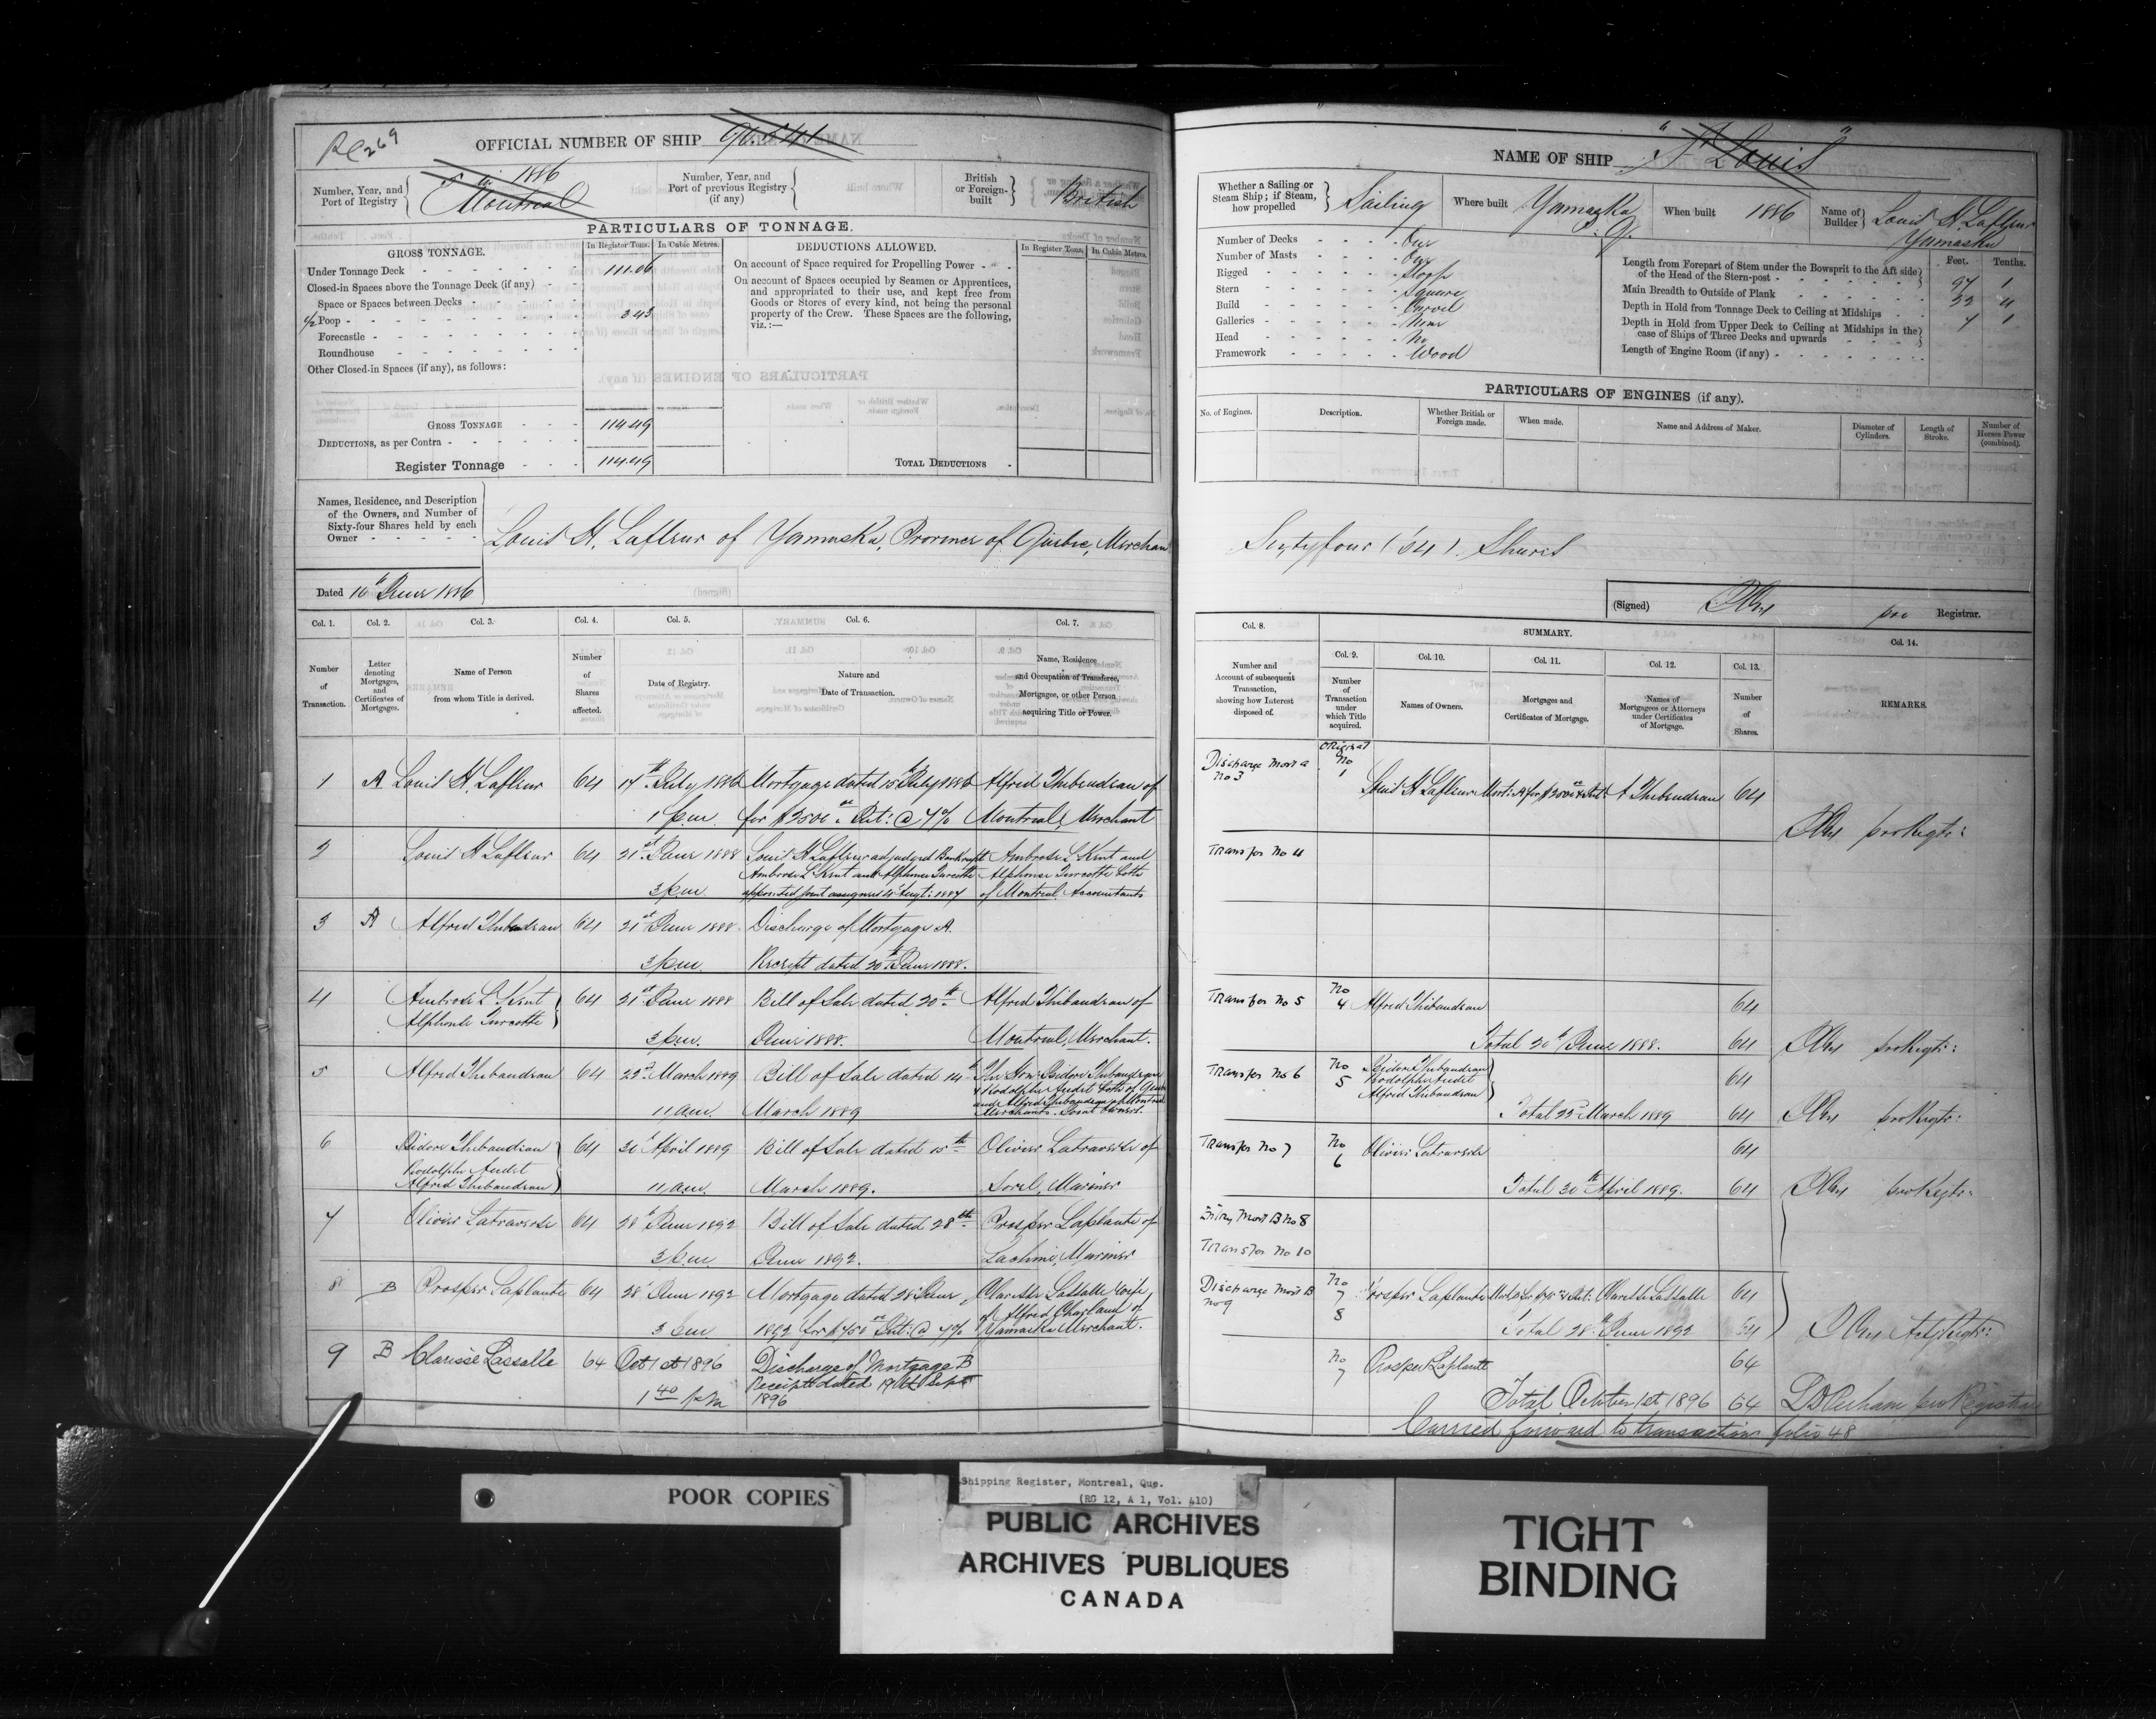 Re 269
OFFICIAL NUMBER OF SHIP
Number, Year, and
Port of Registry
1886
Montreal
Number, Year, and
Port of previous Registry
(if any)
British
or Foreign-
built
British
PARTICULARS OF TONNAGE.
GROSS TONNAGE.
In Register Tons.
In Cubic Metres.
DEDUCTIONS ALLOWED.
In Register Tons.
In Cubic Metres.
Under Tonnage Deck
111.06
Closed-in Spaces above the Tonnage Deck (if any)
Space or Spaces between Decks
1/2 Poop
3.43
Forecastle
Roundhouse
Other Closed-in Spaces (if any), as follows:
On account of Space required for Propelling Power
On account of Spaces occupied by Seamen or Apprentices,
and appropriated to their use, and kept free from
Goods or Stores of every kind, not being the personal
property of the Crew. These Spaces are the following,
viz.:—
GROSS TONNAGE
114.49
DEDUCTIONS, as per Contra
Register Tonnage
114.49
TOTAL DEDUCTIONS
Names, Residence, and Description
of the Owners, and Number of
Sixty-four Shares held by each
Owner
Louis H. Lafleur of Yamaska, Province of Quebec, Merchan
Dated 16th June 1886
Col. 1.
Col. 2.
Col. 3.
Col. 4.
Col. 5.
Col. 6.
Col. 7.
Number
of
Transaction.
Letter
denoting
Mortgages,
and
Certificates of
Mortgages.
Name of Person
from whom Title is derived.
Number
of
Shares
affected.
Date of Registry.
Nature and
Date of Transaction.
Name, Residence
and Occupation of Transferee,
Mortgagee, or other Person
acquiring Title or Power.
1 A Louis H. Lafleur 64 17th July 1886 Mortgage dated 15th July 1886 Alfred Thibaudeau of
1 p.m. for $2500 Int: @ 7% Montreal, Merchant
2 Louis H Lafleur 64 21st June 1888 Louis H Lafleur adjudged Bankrupt Ambrose L Kent and
Ambrose L Kent and Alphonse Turcotte Alphonse Turcotte both
3 p.m. appointed joint assignees 4 Augt: 1887 of Montreal Accountants
3 A Alfred Thibaudeau 64 21st June 1888 Discharge of Mortgage A.
3 p.m. Receipt dated 20th June 1888.
4 Ambrose L Kent 64 21st June 1888 Bill of Sale dated 20th Alfred Thibaudeau of
Alphonse Turcotte
3 p.m. June 1888. Montreal, Merchant.
5 Alfred Thibaudeau 64 22nd March 1889 Bill of Sale dated 14th The Hon: Isidore Thibaudeau
& Rodolphe Audet both of
and Alfred Thibaudeau of Montreal
11 a.m. March 1889 Merchants. Joint Owners.
6 Isidore Thibaudeau 64 30th April 1889 Bill of Sale dated 15th Olivier Latraverse of
Rodolphe Audet
Alfred Thibaudeau 11 a.m. March 1889. Sorel, Mariner
7 Olivier Latraverse 64 28th June 1892 Bill of Sale dated 28th Prosper Laplante of
3 p.m June 1892. Lachine, Mariner
8 B Prosper Laplante 64 28th June 1892 Mortgage dated 28th June Clarisse Lassalle wife
of Alfred Charland of
3 pm 1892 for $450 Int: @ 7% Yamaska Merchant.
9 B Clarisse Lassalle 64 Oct 1st 1896 Discharge of Mortgage B
Receipt dated 19th Sept
1 40 pm 1896
NAME OF SHIP
"St Louis"
Whether a Sailing or
Steam Ship; if Steam,
how propelled
Sailing
Where built
Yamaska
Q.
When built
1886
Name of
Builder
Louis H. Lafleur
Yamaska
Number of Decks One
Number of Masts One
Rigged Sloop
Stern Square
Build Carvel
Galleries None
Head No
Framework Wood
Feet.
Tenths.
Length from Forepart of Stem under the Bowsprit to the Aft side
of the Head of the Stern-post
97 1
Main Breadth to Outside of Plank
Depth in Hold from Tonnage Deck to Ceiling at Midships
7 1
Depth in Hold from Upper Deck to Ceiling at Midships in the
case of Ships of Three Decks and upwards
Length of Engine Room (if any)
PARTICULARS OF ENGINES (if any).
No. of Engines.
Description.
Whether British or
Foreign made.
When made.
Name and Address of Maker.
Diameter of
Cylinders.
Length of
Stroke.
Number of
Horses Power
(combined).
Sixtyfour (64) Shares
(Signed)
pro Registrar.
Col. 8.
SUMMARY.
Col. 9.
Col. 10.
Col. 11.
Col. 12.
Col. 13.
Col. 14.
Number and
Account of subsequent
Transaction,
showing how Interest
disposed of.
Number
of
Transaction
under
which Title
acquired.
Names of Owners.
Mortgages and
Certificates of Mortgage.
Names of
Mortgagees or Attorneys
under Certificates
of Mortgage.
Number
of
Shares.
REMARKS.
Discharge Mort A
No 3
Original
No
1
Louis H Lafleur Mort: A for $2500 & Int: A Thibaudeau 64
pro Regtr:
Transfer No 4
Transfer No 5 No 4 Alfred Thibaudeau 64
Total 20th June 1888. 64 pro Regtr:
Transfer No 6 No 5 Isidore Thibaudeau
Rodolphe Audet 64
Alfred Thibaudeau
Total 22nd March 1889 64 pro Regtr:
Transfer No 7 No 6 Olivier Latraverse 64
Total 30th April 1889. 64 pro Regtr:
Entry Mort B No 8
Transfer No 10
Discharge Mort B
No 9
No
7
8
Prosper Laplante Clarisse Lassalle 64
Total 28th June 1892 64
No
7
Prosper Laplante 64
Total October 1st 1896 64 pro Registrar
Carried forward to transaction folio 48
POOR COPIES
Shipping Register, Montreal, Que.
(RG 12, A 1, Vol. 410)
PUBLIC ARCHIVES
ARCHIVES PUBLIQUES
CANADA
TIGHT
BINDING